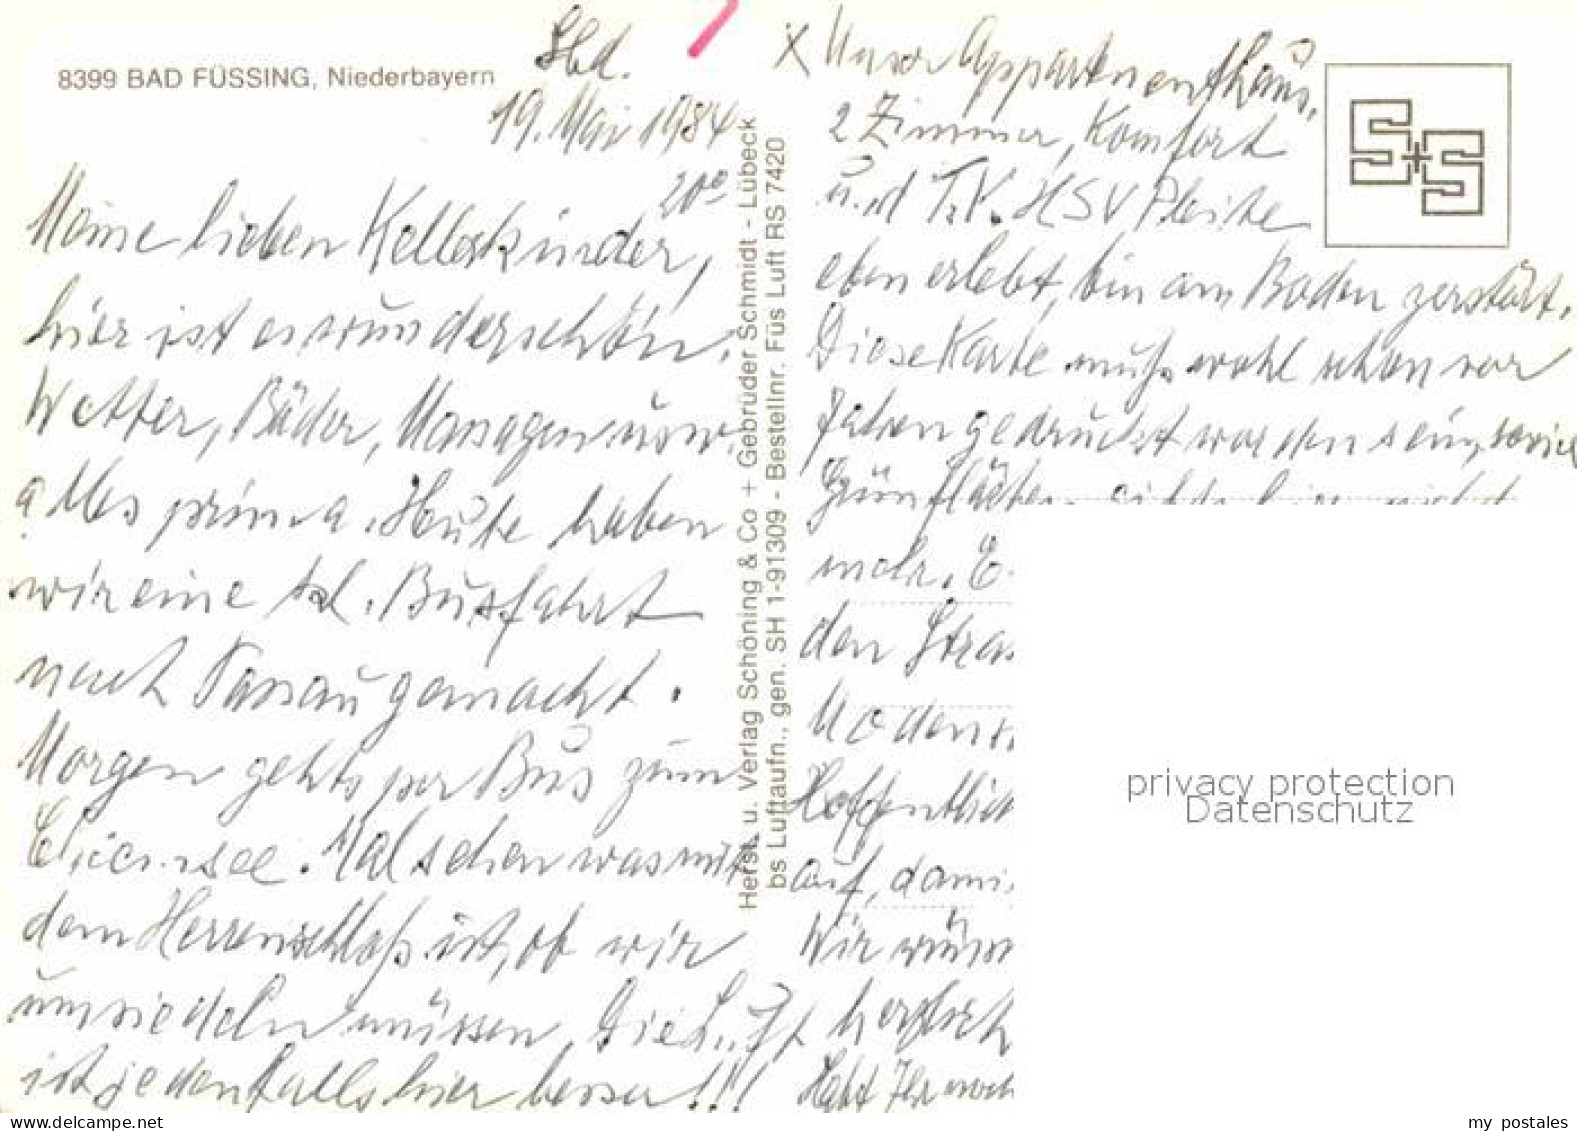 8399 BAD FÜSSING, Niederbayern
Sbd.
19. Mai 1984
20⁰⁰
Meine lieben Kellerkinder,
hier ist es wunderschön.
Wetter, Bäder, Massagen usw.
alles prima. Heute haben
wir eine kl. Busfahrt
nach Passau gemacht.
Morgen gehts per Bus zum
Chiemsee. Mal sehen was mit
dem Herrenschloß ist, ob wir
umsiedeln müssen. Die Luft
ist jedenfalls hier besser!!!
Herst. u. Verlag Schöning & Co + Gebrüder Schmidt - Lübeck
bs Luftaufn., gen. SH 1-91309 - Bestellnr. Füs Luft RS 7420
X Unser Appartmenthaus,
2 Zimmer, Komfort
und T.V. HSV Pleite
eben erlebt, bin am Boden zerstört.
Diese Karte muß wohl schon vor
Jahren gedruckt worden sein, soviel
Grünflächen gibts hier nicht
mehr. E
den Stras
Moden
Hoffentlich
auf, dami
Wir wüns
herzlich
Habt Ihr noch
S+S
privacy protection
Datenschutz
my postales